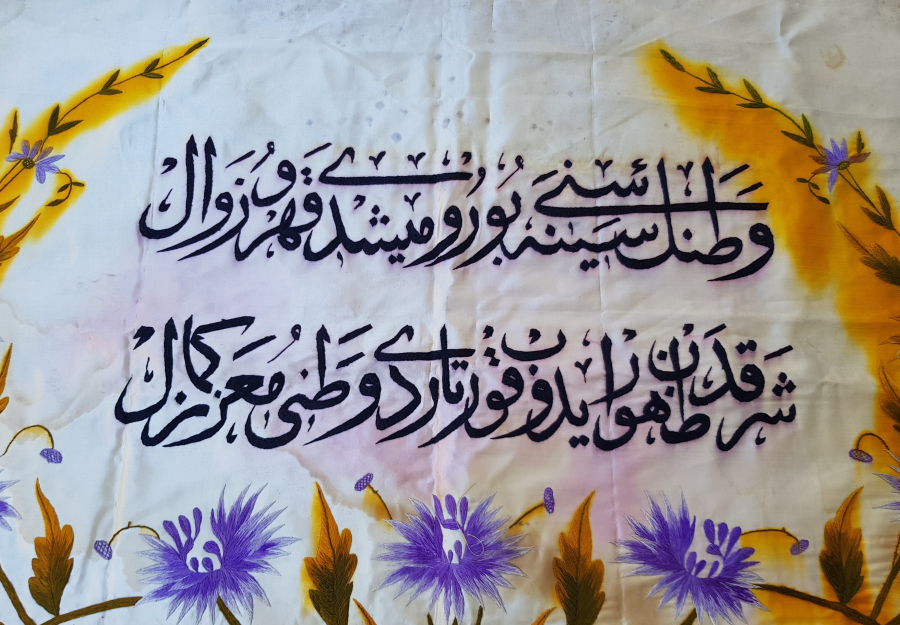 وطنك سينه سنى بورومیشدى قهر و زوال
شرقدن ظهور ايدوب قورتاردى وطنى معزز كمال